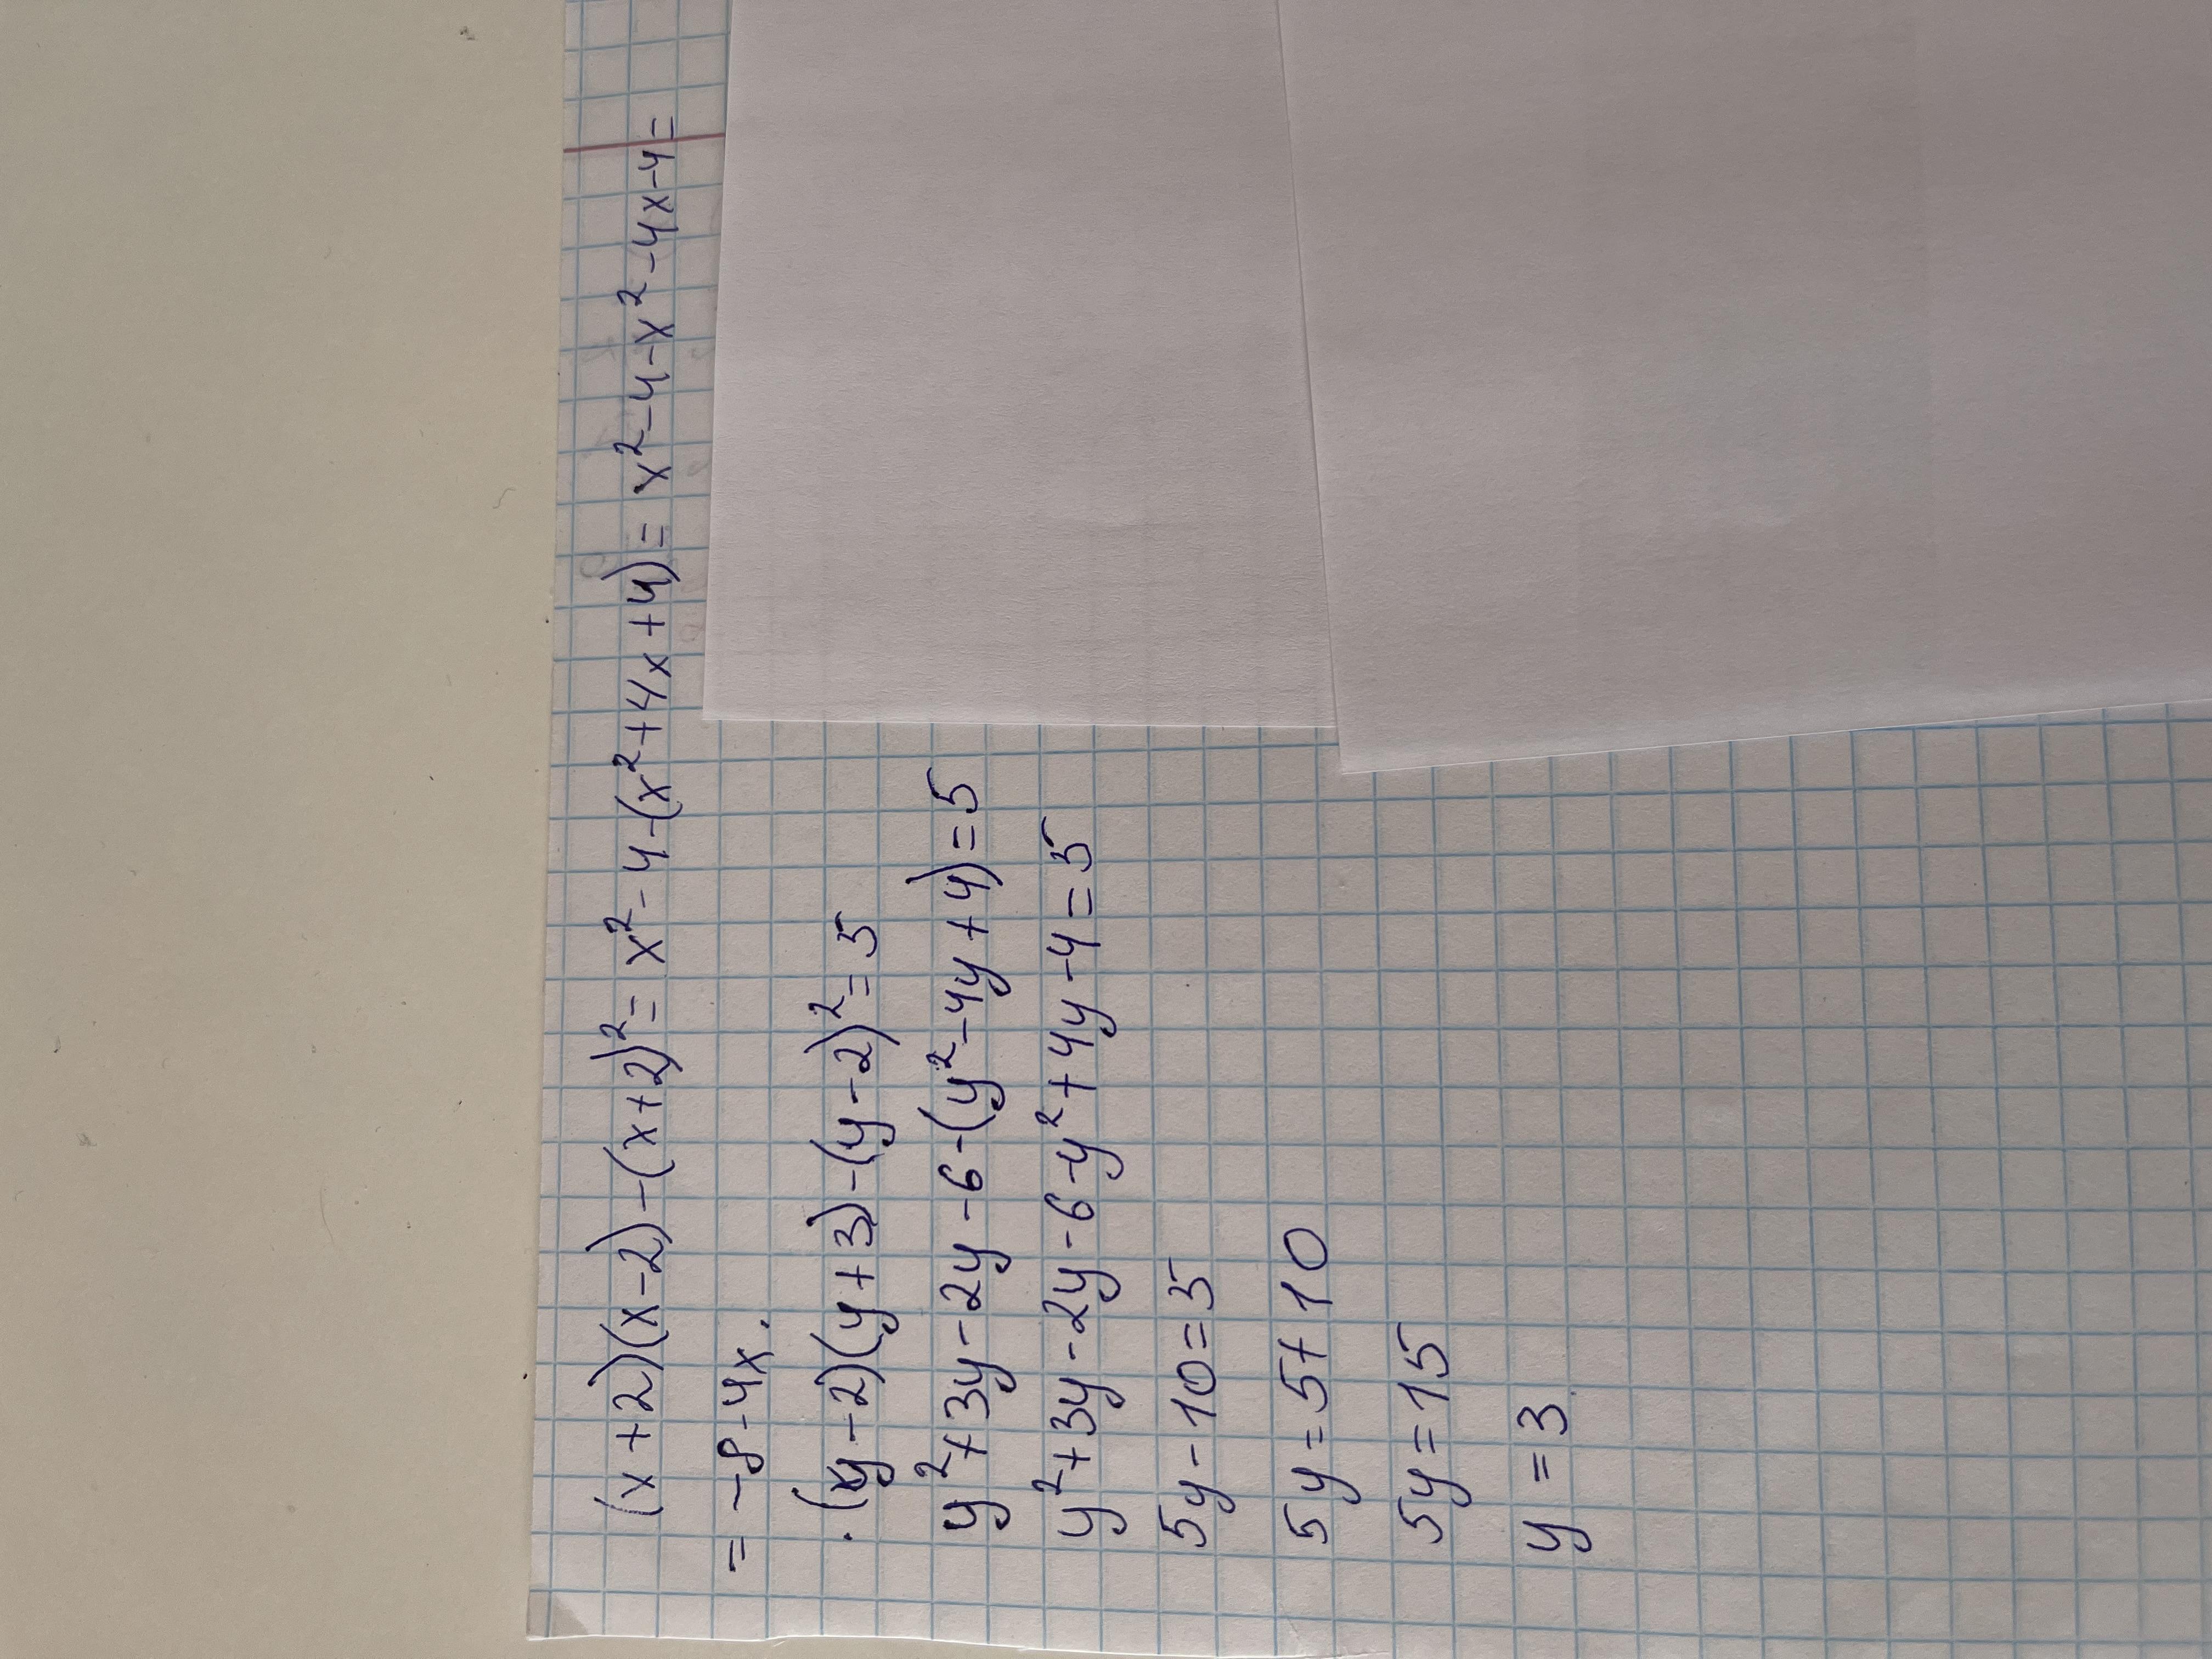 (x+2)(x-2)-(x+2)²=x²-4-(x²+4x+4)=x²-4-x²-4x-4=
=-8-4x.
·(y-2)(y+3)-(y-2)²=5
y²+3y-2y-6-(y²-4y+4)=5
y²+3y-2y-6-y²+4y-4=5
5y-10=5
5y=5+10
5y=15
y=3